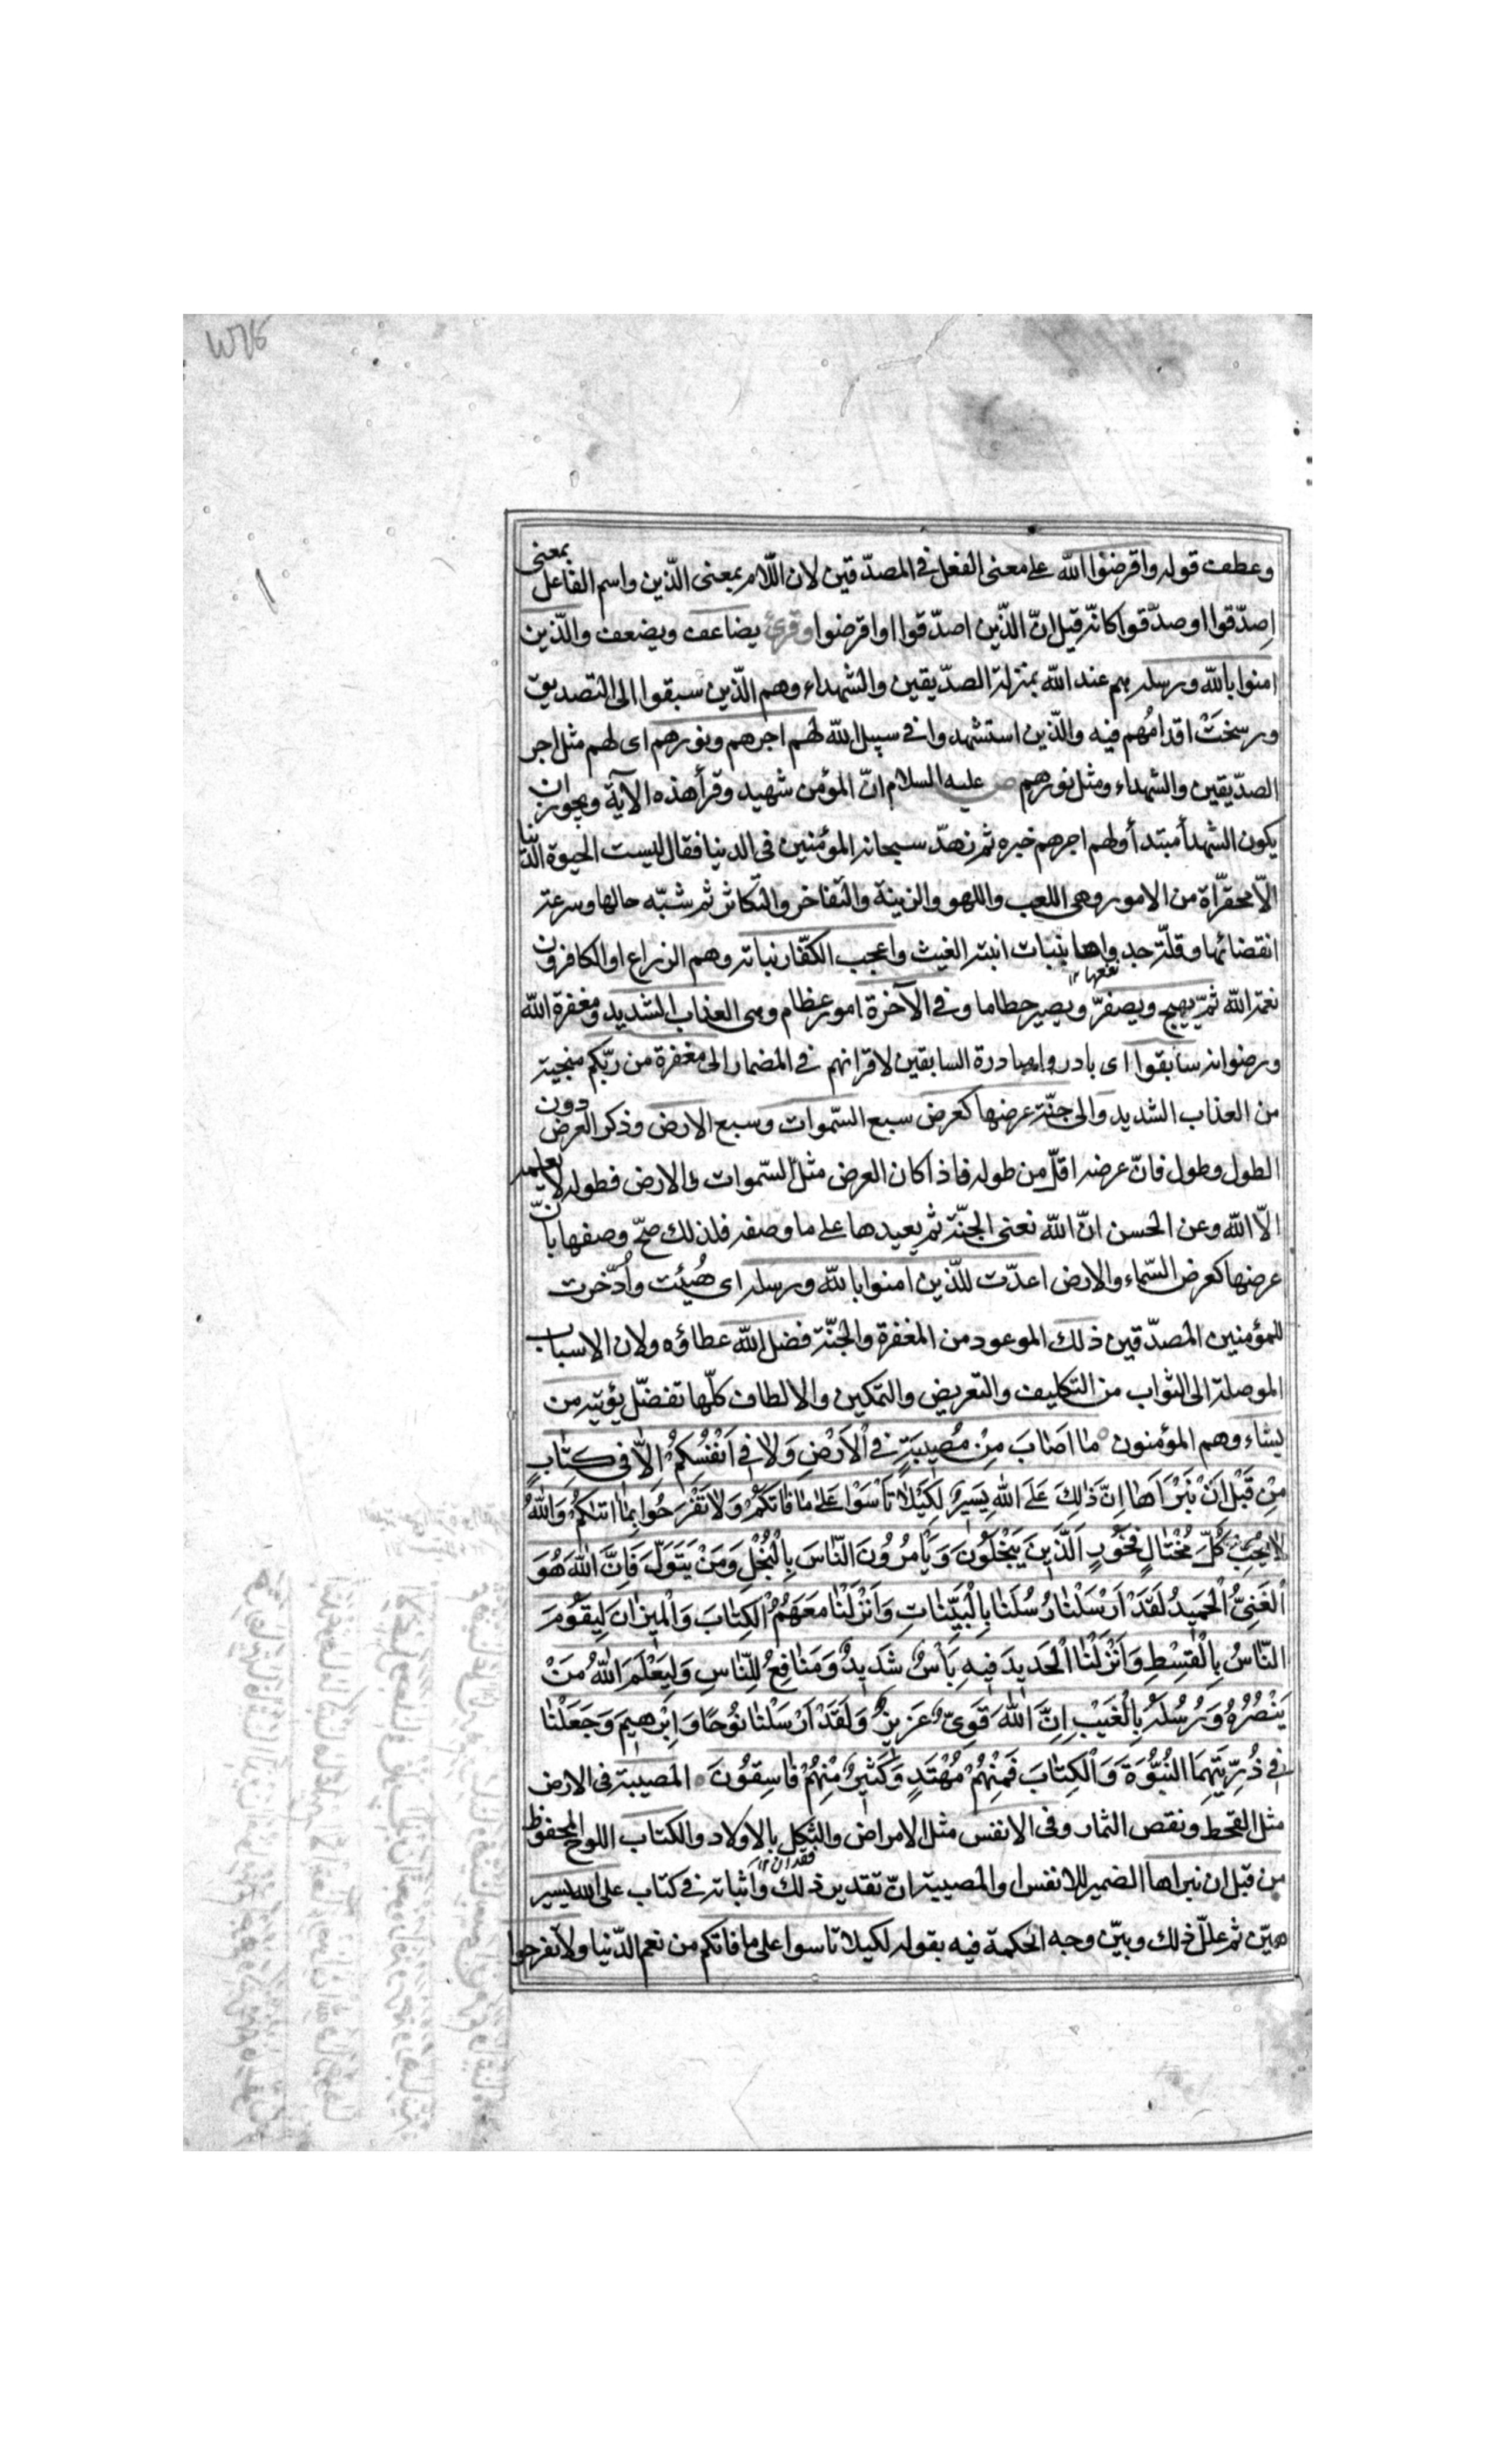 وعطف قوله واقرضوا الله على معنى الفعل في المصدّقين لان اللّام بمعنى الذّين واسم الفاعل بمعنى
اصدّقوا اوصدّقوا كانّه قيل انّ الذّين اصدّقوا واقرضوا وقرئ يضاعف ويضعف والذّين
امنوا بالله ورسله هم عند الله بمنزلة الصدّيقين والشهداء وهم الذّين سبقوا الى التصديق
ورسخَتْ اقدامُهم فيه والذّين استشهدوا في سبيل الله لهم اجرهم ونورهم اى لهم مثل اجر
الصدّيقين والشهداء ومثل نورهم ص عليه السلام انّ المؤمن شهيد وقرأ هذه الآية ويجوز ان
يكون الشهدأ مبتدأ ولهم اجرهم خبره ثم زهّد سبحانه المؤمنين في الدنيا فقال ليست الحيوة الدّنيا
الّا محقّرات من الامور وهى اللعب واللهو والزينة والتّفاخر والتّكاثر ثم شبّه حالها وسرعة
انقضائها وقلّة جدواها بنبات انبته الغيث واعجب الكفّار نباته وهم الزراع او الكافرون
نفعها ١٢
نعمة الله ثمّ يهيج ويصفرّ ويصير حطاما وفي الآخرة امور عظام وهى العذاب الشديد ومغفرة الله
ورضوانه سابقوا اى بادروا مبادرة السابقين لاقرانهم في المضمار الى مغفرة من ربّكم منجية
من العذاب الشديد والى جنّة عرضها كعرض سبع السّموات وسبع الارض وذكر العرض دون
الطول وطول فانّ عرضه اقلّ من طوله فاذا كان العرض مثل السّموات والارض فطوله لا يعلمه
الّا الله وعن الحسن انّ الله نعنى الجنّة ثم يعيدها على ما وصفه فلذلك صحّ وصفها بانّ
عرضها كعرض السّماء والارض اعدّت للذّين امنوا بالله ورسله اى هُيئت وادُّخرت
للمؤمنين المصدّقين ذلك الموعود من المغفرة والجنّة فضل الله عطاؤه ولان الاسباب
الموصلة الى الثواب من التكليف والتعريض والتمكين والالطاف كلّها تفضّل يؤتيه من
يشاء وهم المؤمنون مٰا اَصٰابَ مِنْ مُصيبَةٍ فِي الْاَرْضِ وَلٰا فِي اَنْفُسِكُمْ اِلّٰا فى كِتٰابٍ
مِنْ قَبْلِ اَنْ نَبْرَأَهٰا اِنَّ ذٰلِكَ عَلَى اللهِ يَسيرٌ لِكَيْلٰا تَأْسَوْا عَلىٰ مٰا فٰاتَكُمْ وَلٰا تَفْرَحُوا بِمٰا اٰتٰيكُمْ وَاللهُ
لٰا يُحِبُّ كُلَّ مُخْتٰالٍ فَخُورٍ اَلَّذينَ يَبْخَلُونَ وَيَأْمُرُونَ النّٰاسَ بِالْبُخْلِ وَمَنْ يَتَوَلَّ فَاِنَّ اللهَ هُوَ
الْغَنِىُّ الْحَميدُ لَقَدْ اَرْسَلْنٰا رُسُلَنٰا بِالْبَيِّنٰاتِ وَاَنْزَلْنٰا مَعَهُمُ الْكِتٰابَ وَالْميزٰانَ لِيَقُومَ
النّٰاسُ بِالْقِسْطِ وَاَنْزَلْنٰا الْحَديدَ فيهِ بَأْسٌ شَديدٌ وَمَنٰافِعُ لِلنّٰاسِ وَلِيَعْلَمَ اللهُ مَنْ
يَنْصُرُهُ وَرُسُلَهُ بِالْغَيْبِ اِنَّ اللهَ قَوِىٌّ عَزيزٌ وَلَقَدْ اَرْسَلْنٰا نُوحًا وَاِبْرٰهيمَ وَجَعَلْنٰا
فِى ذُرِّيَّتِهِمَا النُّبُوَّةَ وَالْكِتٰابَ فَمِنْهُمْ مُهْتَدٍ وَكَثيرٌ مِنْهُمْ فٰاسِقُونَ المصيبة في الارض
مثل القحط ونقص الثمار وفي الانفس مثل الامراض والثكل بالاولاد والكتاب اللوح المحفوظ
فقدان ١٢
من قبل ان نبراها الضمير للانفس او المصيبة انّ تقدير ذلك واثباته في كتاب على الله يسير
هيّن ثم علّل ذلك وبيّن وجه الحكمة فيه بقوله لكيلا تاسوا على ما فاتكم من نعم الدّنيا ولا تفرحوا